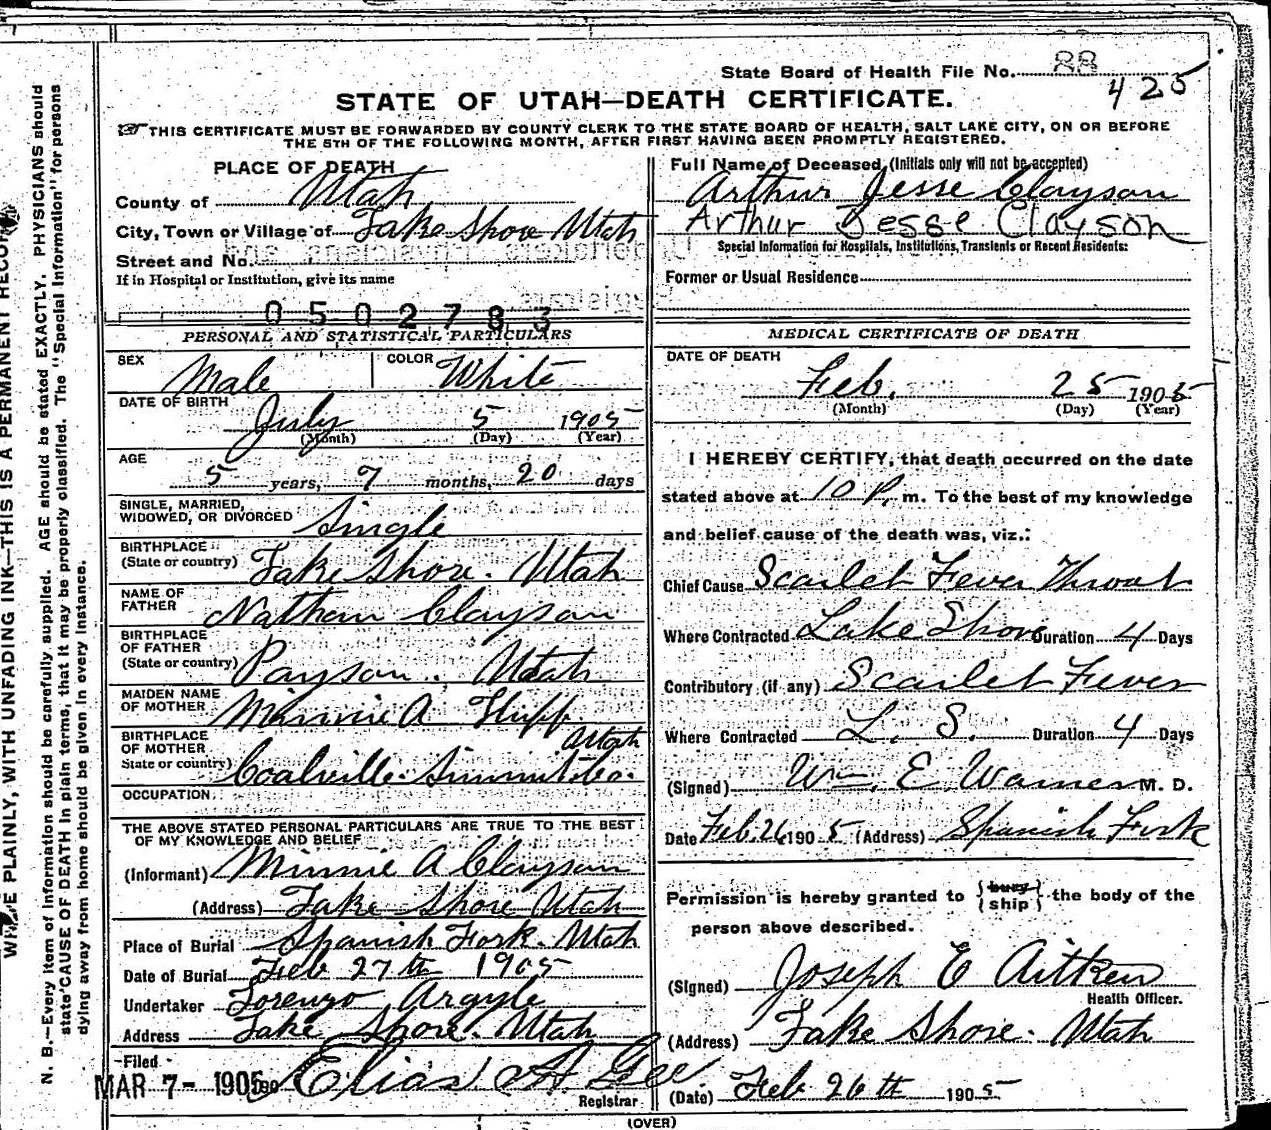 State Board of Health File No. 88
425
STATE OF UTAH—DEATH CERTIFICATE.
☞ THIS CERTIFICATE MUST BE FORWARDED BY COUNTY CLERK TO THE STATE BOARD OF HEALTH, SALT LAKE CITY, ON OR BEFORE
THE 5TH OF THE FOLLOWING MONTH, AFTER FIRST HAVING BEEN PROMPTLY REGISTERED.
PLACE OF DEATH
County of Utah
City, Town or Village of Lake Shore Utah
Street and No.
If in Hospital or Institution, give its name
0 5 0 2 7 8 3
PERSONAL AND STATISTICAL PARTICULARS
SEX Male COLOR White
DATE OF BIRTH
July 5 1905
(Month) (Day) (Year)
AGE
5 years, 7 months, 20 days
SINGLE, MARRIED,
WIDOWED, OR DIVORCED Single
BIRTHPLACE
(State or country) Lake Shore. Utah
NAME OF
FATHER Nathan Clayson
BIRTHPLACE
OF FATHER
(State or country) Payson. Utah
MAIDEN NAME
OF MOTHER Minnie A
BIRTHPLACE
OF MOTHER Utah
State or country) Coalville. Summit Co.
OCCUPATION
THE ABOVE STATED PERSONAL PARTICULARS ARE TRUE TO THE BEST
OF MY KNOWLEDGE AND BELIEF
(Informant) Minnie A Clayson
(Address) Lake Shore Utah
Place of Burial Spanish Fork. Utah
Date of Burial Feb 27th 1905
Undertaker Lorenzo Argyle
Address Lake Shore. Utah
Filed
MAR 7- 1905 190 Elias A Gee
Registrar
Full Name of Deceased, (Initials only will not be accepted)
Arthur Jesse Clayson
Arthur Jesse Clayson
Special Information for Hospitals, Institutions, Transients or Recent Residents:
Former or Usual Residence
MEDICAL CERTIFICATE OF DEATH
DATE OF DEATH
Feb. 25 1905
(Month) (Day) (Year)
I HEREBY CERTIFY, that death occurred on the date
stated above at 10 P. m. To the best of my knowledge
and belief cause of the death was, viz.:
Chief Cause Scarlet Fever Throat
Where Contracted Lake Shore Duration 4 Days
Contributory (if any) Scarlet Fever
Where Contracted L. S. Duration 4 Days
(Signed) Wm. E. Warner M. D.
Date Feb. 26 1905 (Address) Spanish Fork
Permission is hereby granted to {bury
ship} the body of the
person above described.
(Signed) Joseph E Aitken
Health Officer.
(Address) Lake Shore. Utah
(Date) Feb 26th 1905
(OVER)
N. B.—Every item of information should be carefully supplied. AGE should be stated EXACTLY. PHYSICIANS should
state CAUSE OF DEATH in plain terms, that it may be properly classified. The "Special Information" for persons
dying away from home should be given in every instance.
PLAINLY, WITH UNFADING INK—THIS IS A PERMANENT